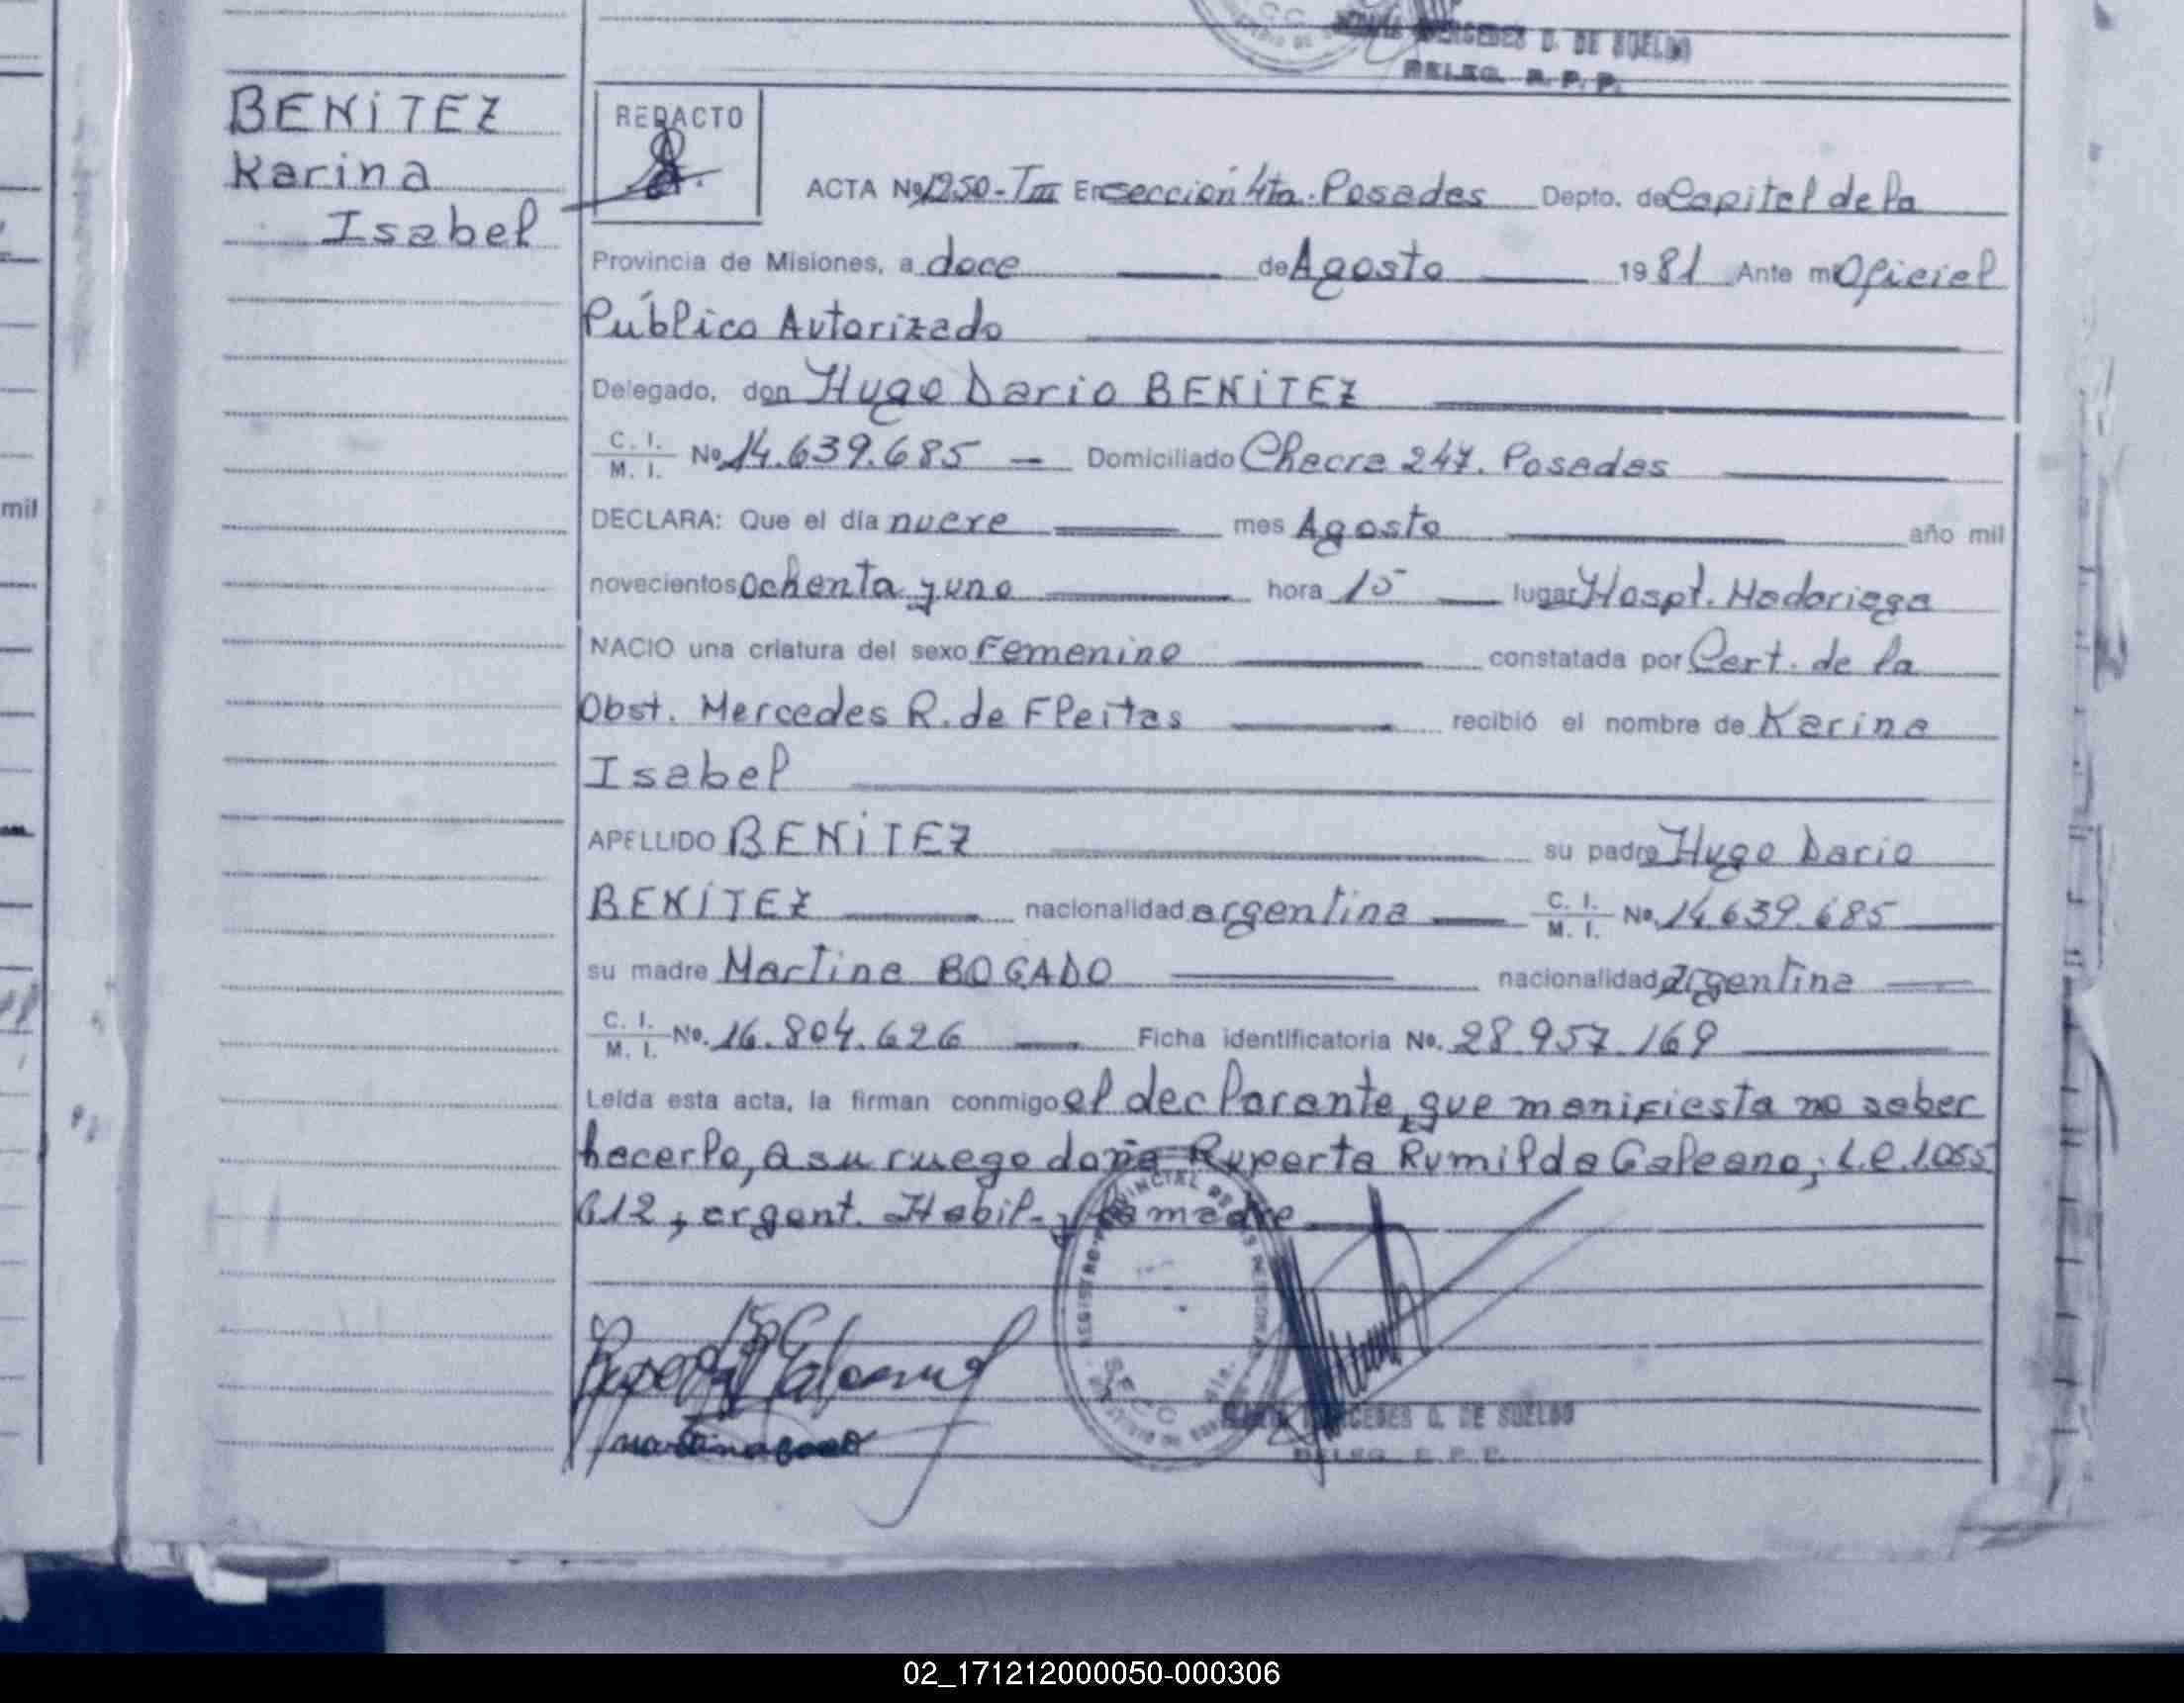 MERCEDES D. DE SUELDO
DELEG. R. P. P.
BENiTEZ
Karina
Isabel
REDACTO
ACTA Nº 1250-TIII En sección 4ta. Posadas Depto. de Capital de la
Provincia de Misiones, a doce de Agosto 1981 Ante mi Oficial
Público Autorizado
Delegado, don Hugo Dario BENiTEZ
C. I.
M. I. Nº 14.639.685 Domiciliado Chacra 247. Posadas
mil
DECLARA: Que el día nueve mes Agosto año mil
novecientos ochenta y uno hora 15 lugar Hospt. Madariaga
NACIO una criatura del sexo Femenino constatada por Cert. de la
Obst. Mercedes R. de Fleitas recibió el nombre de Karina
Isabel
APELLIDO BENiTEZ su padre Hugo Dario
BENiTEZ nacionalidad argentina C. I.
M. I. Nº. 14.639.685
su madre Martina BOGADO nacionalidad argentina
C. I.
M. I. Nº. 16.804.626 Ficha identificatoria Nº. 28.957.169
Leída esta acta, la firman conmigo el declarante, que manifiesta no saber
hacerlo, a su ruego doña Ruperta Rumilda Galeano, L.C. 1.055
612, argent. Habil. y la madre
REGISTRO PROVINCIAL DE LAS PERSONAS
MERCEDES D. DE SUELDO
DELEG. R. P. P.
02_171212000050-000306